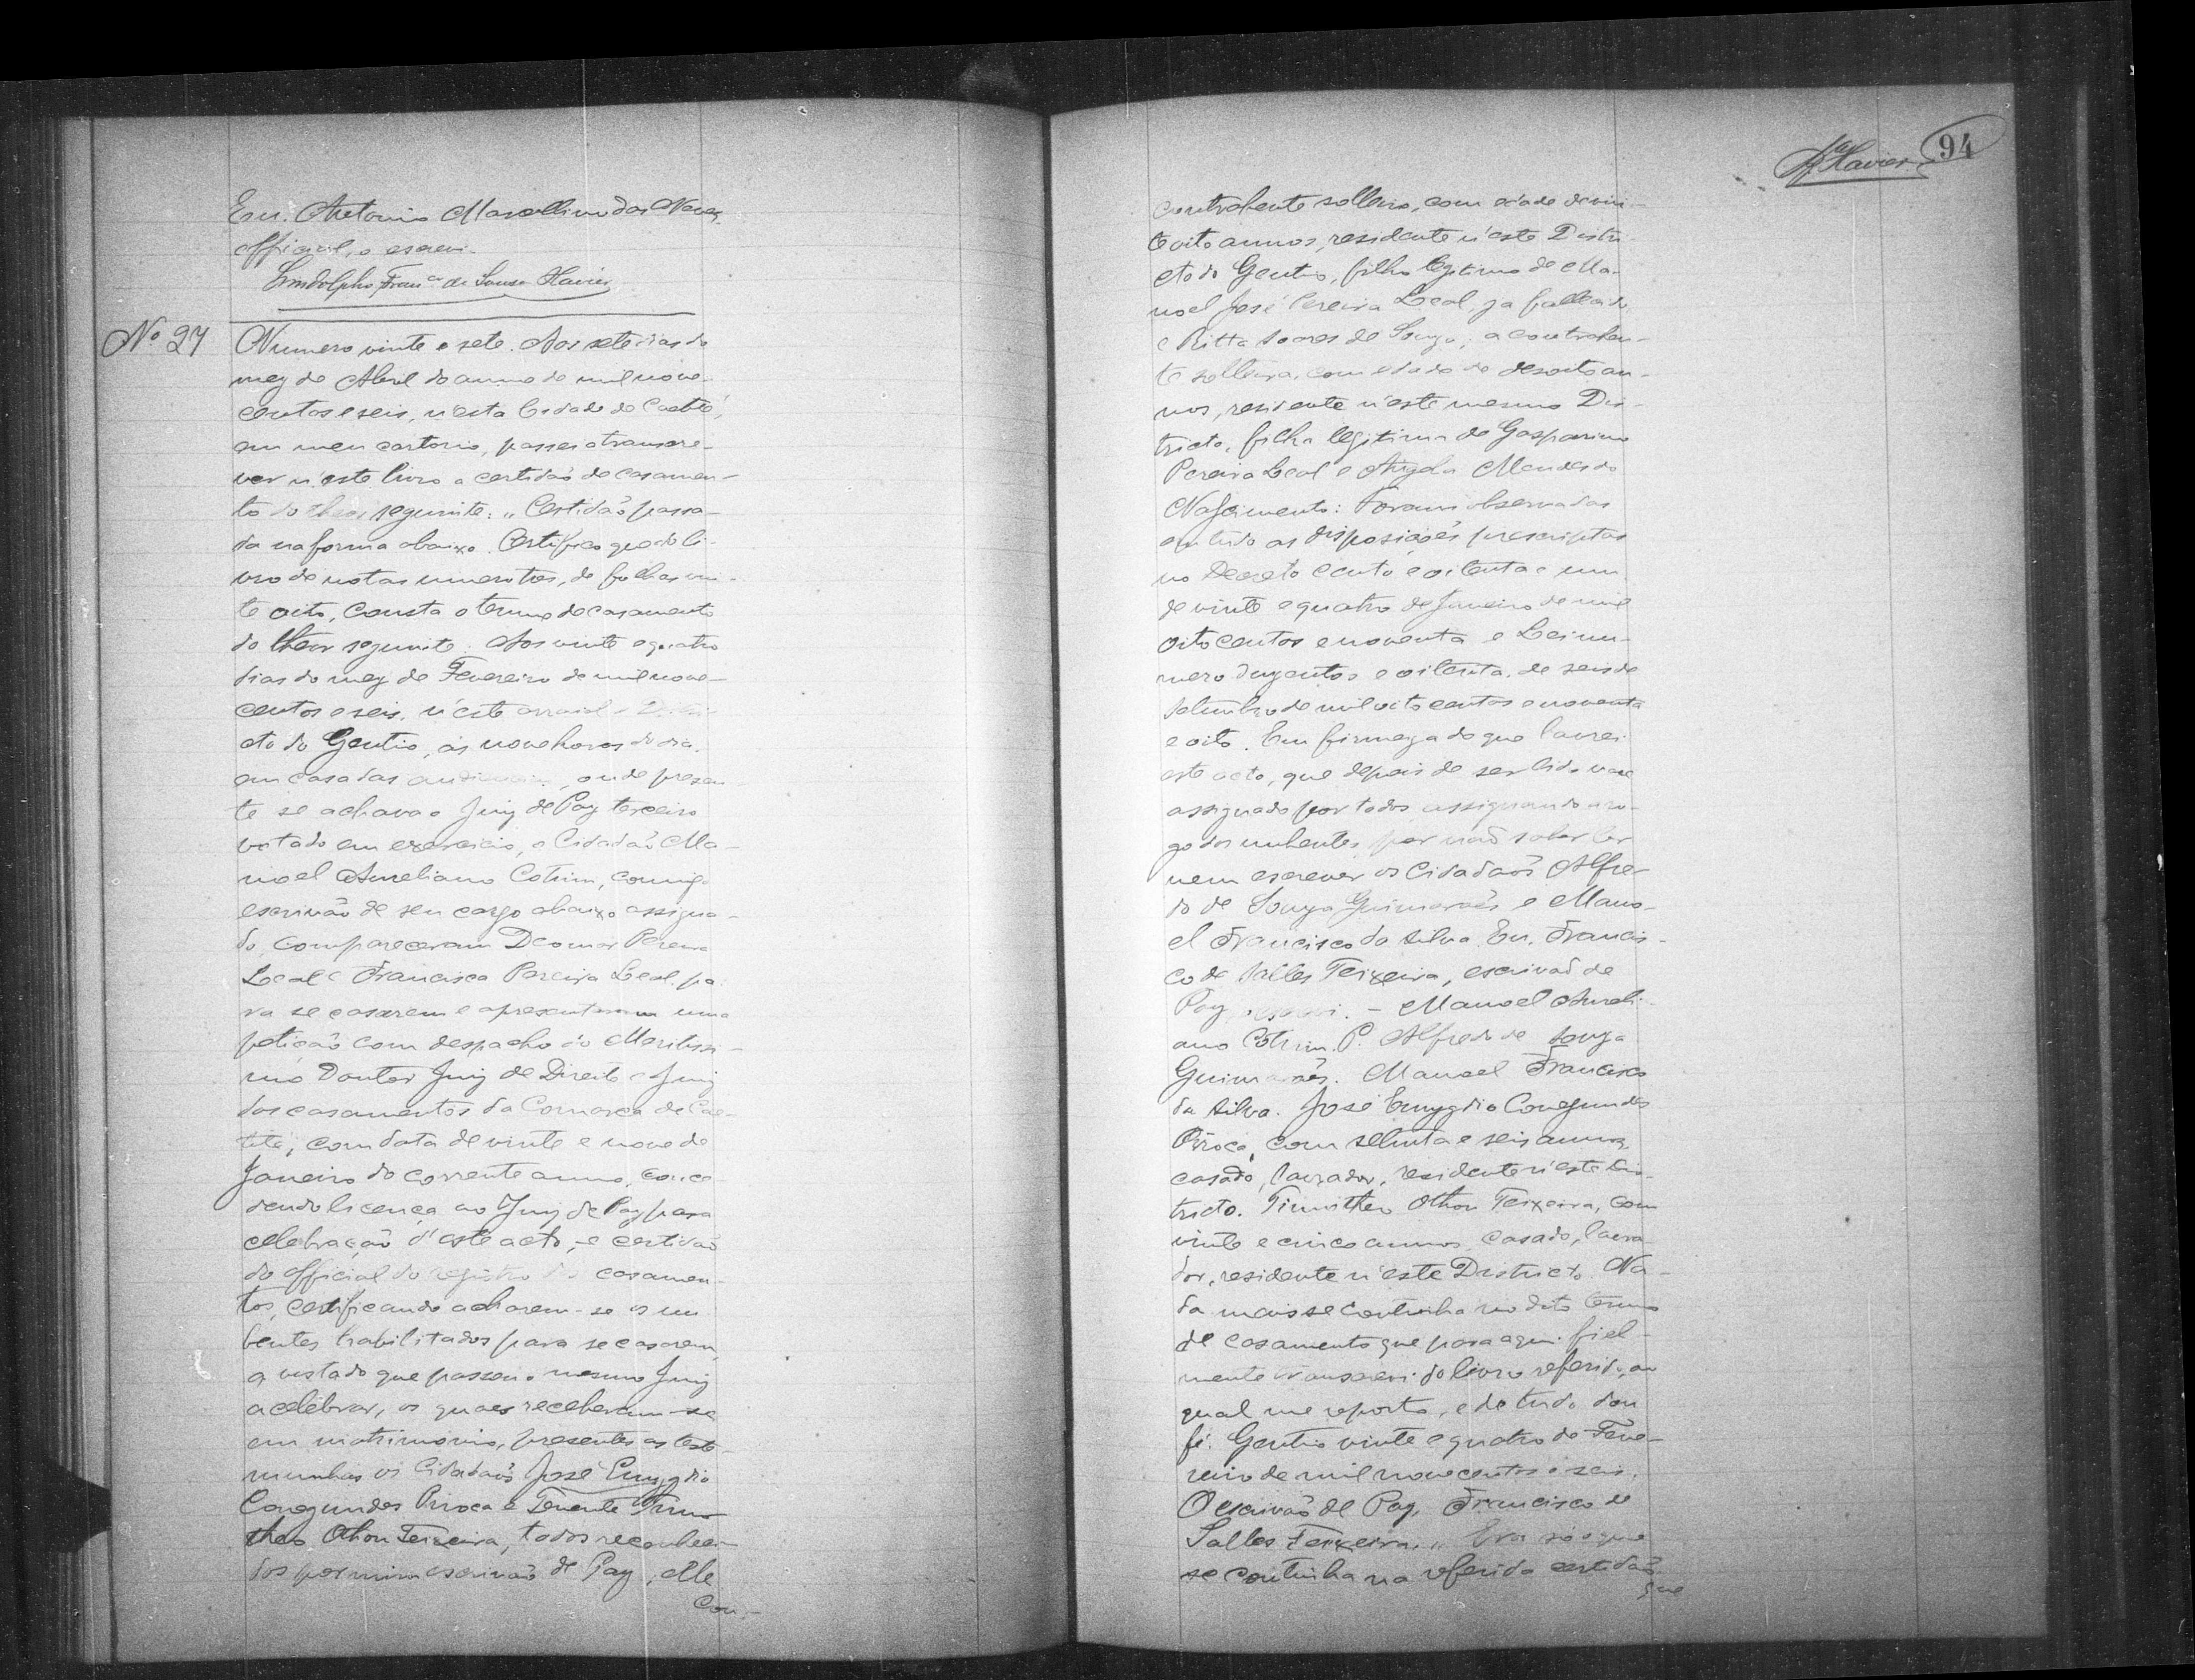 Eu. Antonio Marcellino das Neves,
official, o escrevi.
Lindolpho Franco de Sousa Xavier
Nº 27
Numero vinte e sete. Aos sete dias do
mez de Abril do anno de mil nove-
centos e seis, n'esta Cidade de Caeteté,
em meu cartorio, passei a transcre-
ver n'este livro a certidaõ de casamen-
to do theor seguinte: „ Certidaõ passa-
da na forma abaixo. Certifico que do li-
vro de notas numero tres, de folhas vin-
te oito, consta o termo de casamento
do theor seguinte. Aos vinte e quatro
dias do mez de Fevereiro de mil nove-
centos e seis, n'este arraial e Distri-
cto do Gentio, ás nove horas do dia,
em casa das audiencias, onde presen-
te se achava o Juiz de Paz terceiro
votado em exercicio, o Cidadaõ Ma-
noel Aureliano Cotrim, comigo
escrivão de seu cargo abaixo assigna-
do, compareceram Deomar Pereira
Leal e Francisca Pereira Leal, pa-
ra se casarem e apresentaram uma
petiçaõ com despacho do Meritissi-
mo Doutor Juiz de Direito e Juiz
dos casamentos da Comarca de Cae-
teté, com data de vinte e nove de
Janeiro do corrente anno, conce-
dendo licença ao Juiz de Paz para
celebraçaõ d'este acto, e certidaõ
do official do registro dos casamen-
tos, certificando acharem-se os nu-
bentes habilitados para se casarem,
a vista do que passou o mesmo Juiz
a celebrar, os quaes receberam-se
em matrimonio, presentes as teste-
munhas os Cidadaõs José Emygdio
Conegundes Piroca e Tenente Timo-
theo Othon Teixeira, todos reconheci-
dos por mim escrivaõ de Paz, elle
con-
Xavier 94
contrahente solteiro, com edade de vin-
te oito annos, residente n'este Distri-
cto do Gentio, filho legitimo de Ma-
noel José Pereira Leal ja fallecido
e Ritta Soares de Souza; a contrahen-
te solteira, com edade de desoito an-
nos, residente n'este mesmo Dis-
tricto, filha legitima de Gasparino
Pereira Leal e Angela Mendes do
Nascimento: Foram observadas
em tudo as disposiçoẽs prescriptas
no Decreto cento e oitenta e um
de vinte e quatro de Janeiro de mil
oito centos e noventa e Lei nu-
mero duzentos e oitenta, de seis de
Setembro de mil oito centos e noventa
e oito. Em firmeza do que lavrei
este acto, que depois de ser lido vae
assignado por todos assignando a ro-
go dos nubentes, por naõ saber ler
nem escrever os Cidadaõs Alfre-
do de Souza Guimarães e Mano-
el Francisco da Silva. Eu. Francis-
co de Salles Teixeira, escrivaõ de
Paz, o escrevi. - Manoel Aureli-
ano Cotrim. P. Alfredo de Souza
Guimarães. Manoel Francisco
da Silva. José Emygdio Conegundes
Piroca, com setenta e seis annos,
casado, lavrador, residente n'este Dis-
tricto. Timotheo Othon Teixeira, com
vinte e cinco annos, casado, lavra-
dor, residente n'este Districto. Na-
da mais se continha no dito termo
de casamento que para aqui fiel-
mente transcrevi do livro referido, ao
qual me reporto, e de tudo dou
fé. Gentio vinte e quatro de Feve-
reiro de mil novecentos e seis.
O escrivaõ de Paz, Francisco de
Salles Teixeira. „ Era só o que
se continha na referida certidaõ
que